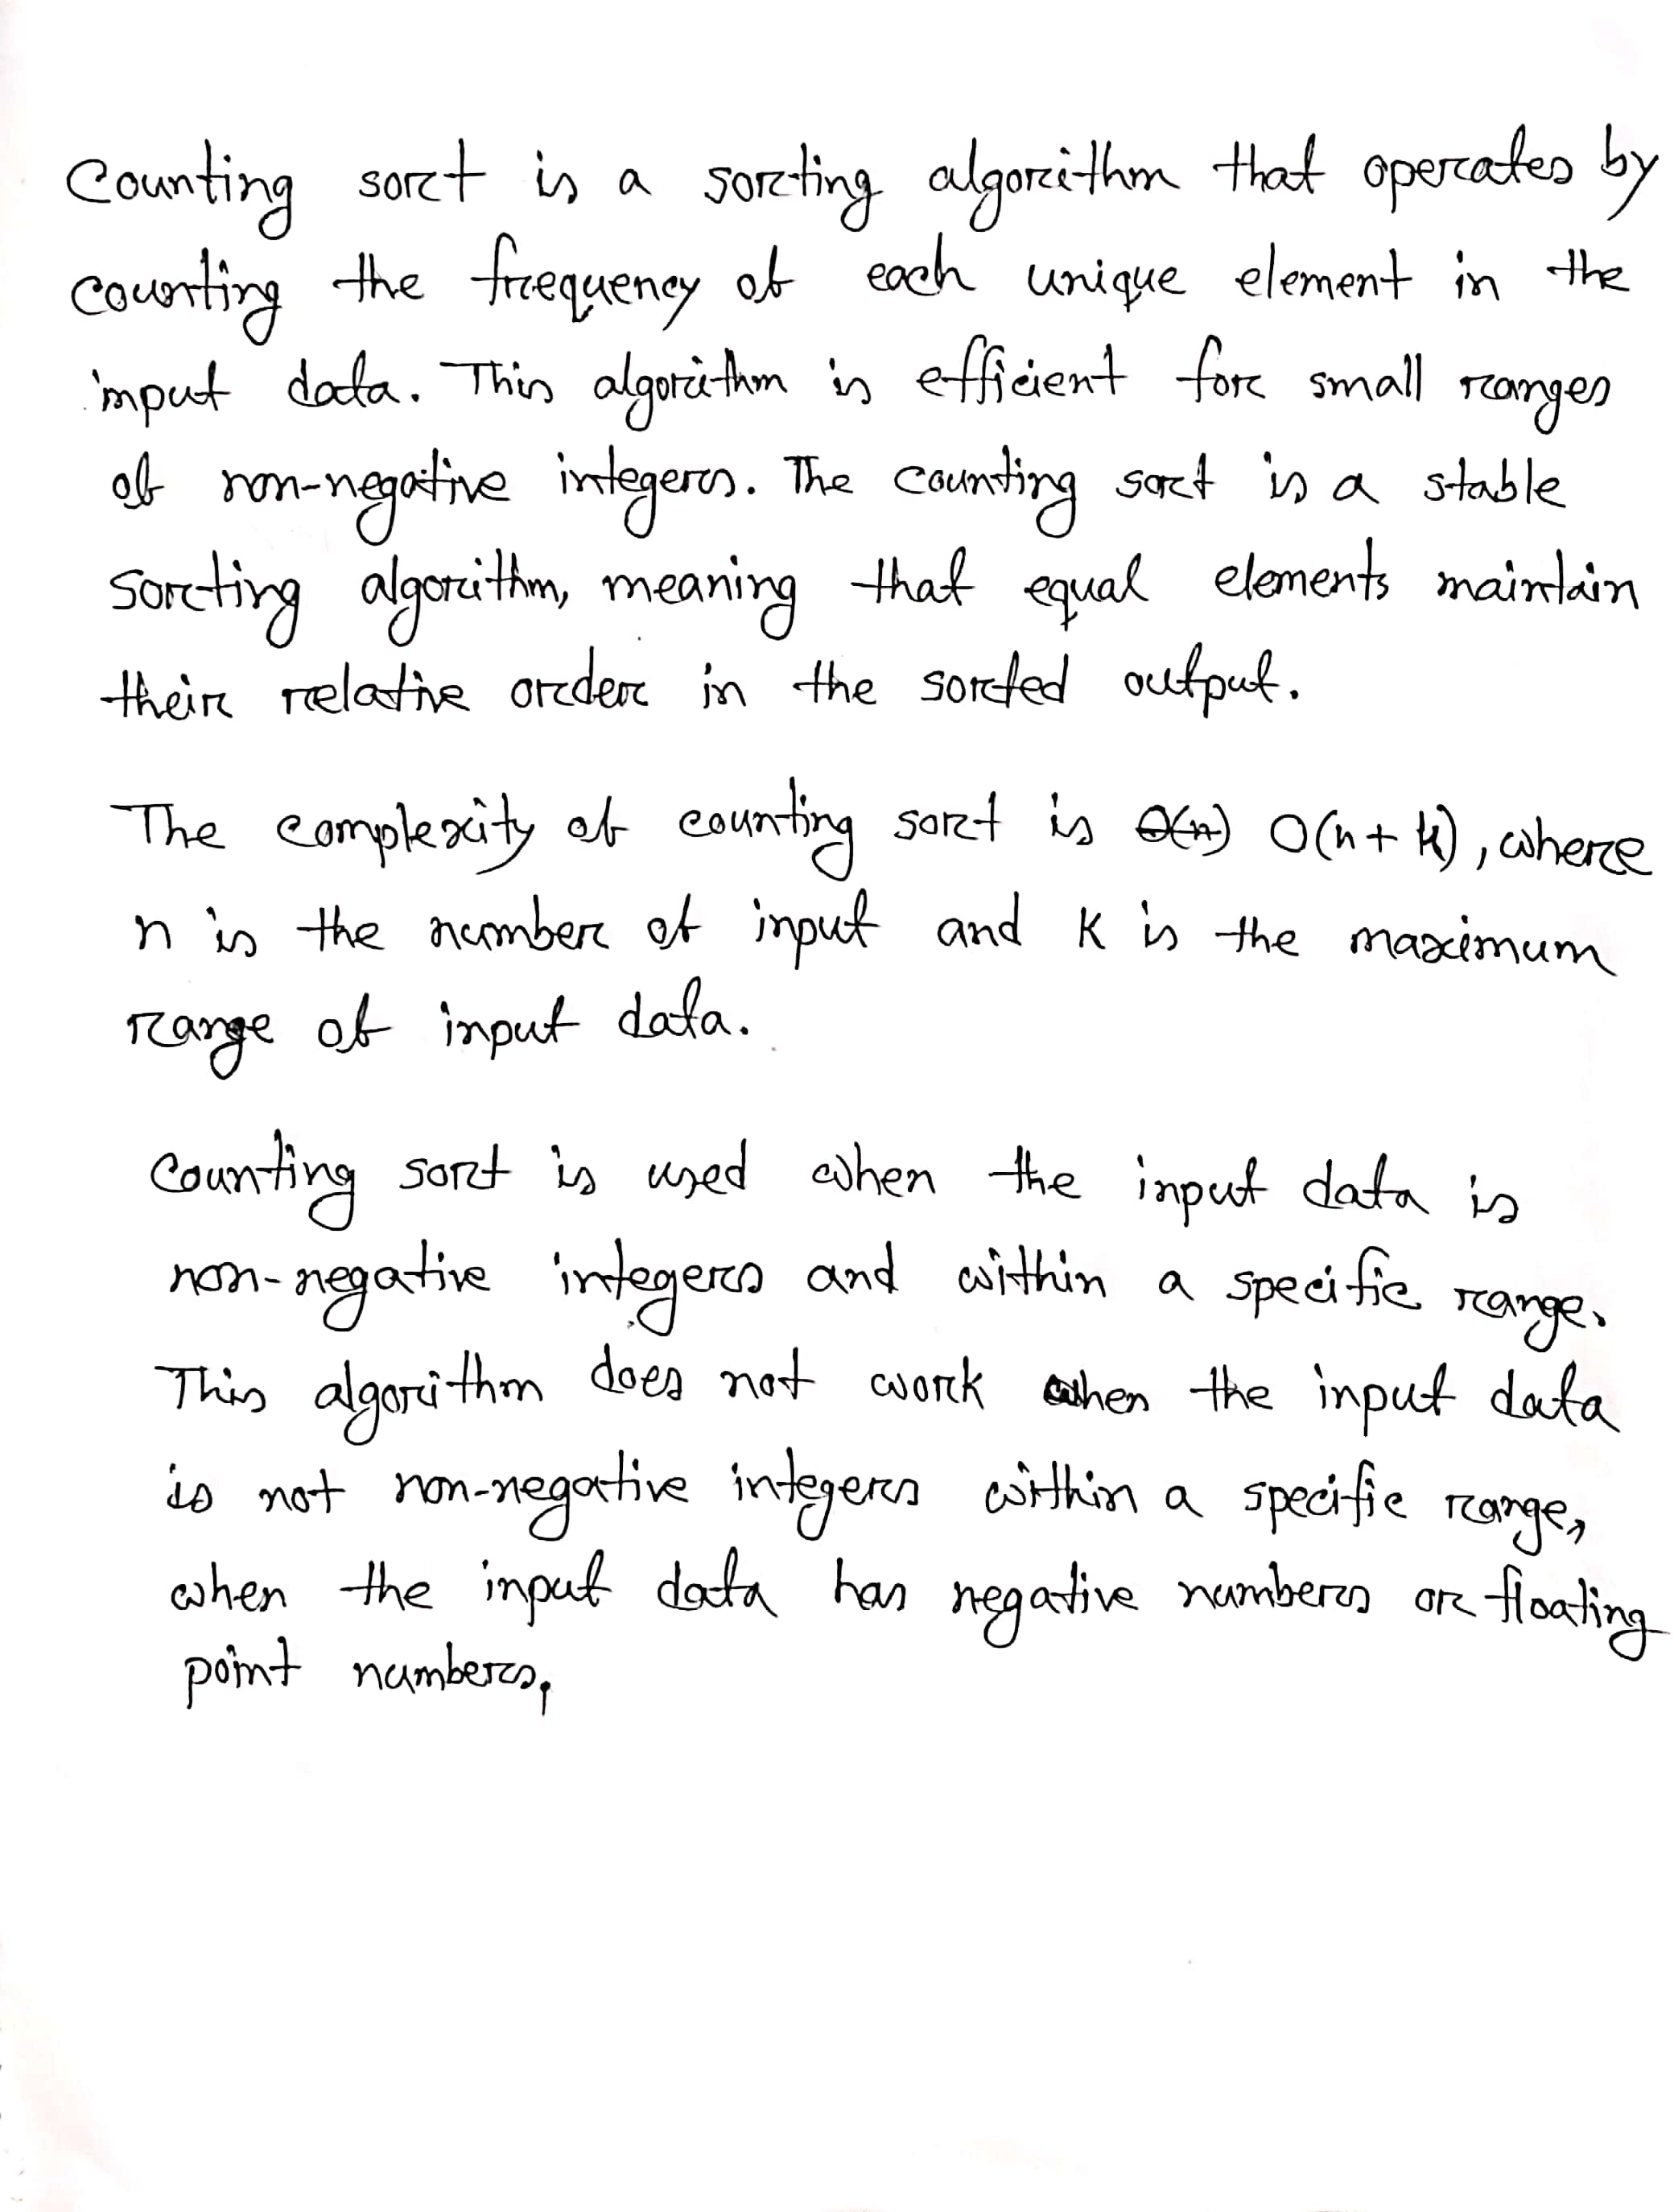 Counting sort is a sorting algorithm that operates by
counting the frequency of each unique element in the
input data. This algorithm is efficient for small ranges
of non-negative integers. The counting sort is a stable
sorting algorithm, meaning that equal elements maintain
their relative order in the sorted output.
The complexity of counting sort is O(n) O(n + k), where
n is the number of input and k is the maximum
range of input data.
Counting sort is used when the input data is
non-negative integers and within a specific range.
This algorithm does not work when the input data
is not non-negative integers within a specific range,
when the input data has negative numbers or floating
point numbers,